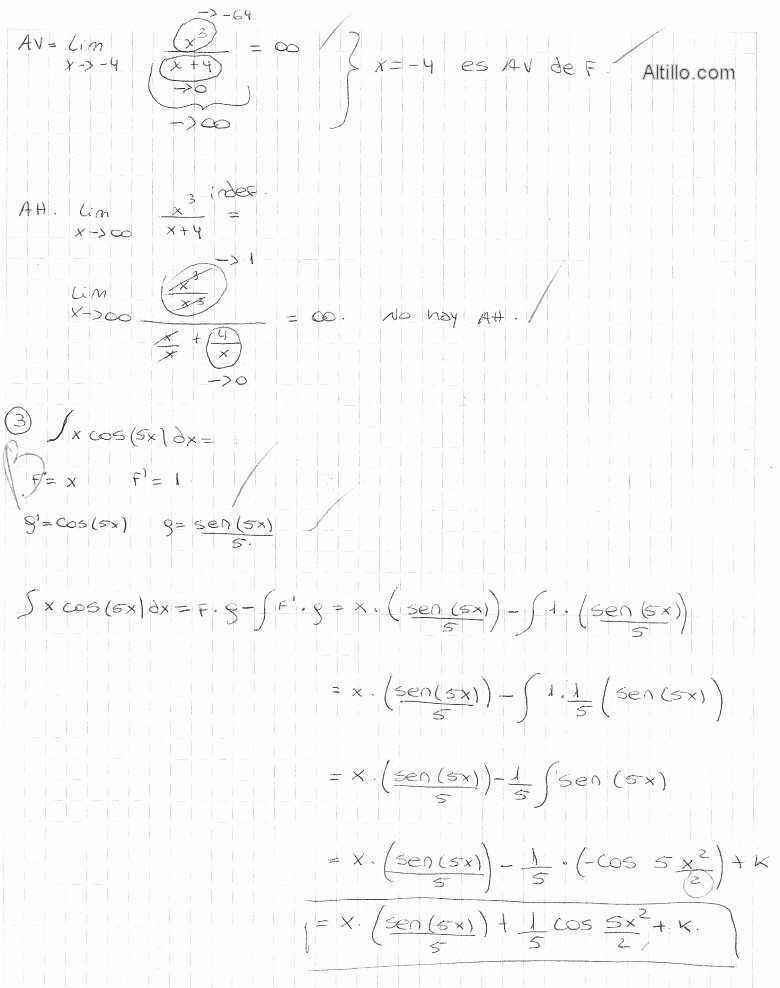 AV = Lim x→-4 x³ →-64 / x+4 →0 →∞ = ∞ } x = -4 es AV de F.
Altillo.com
AH. Lim x→∞ x³ / x+4 = indef.
Lim x→∞ x³/x³ →1 / x/x + 4/x →0 = ∞. No hay AH.
③ ∫ x cos(5x) dx =
F = x F' = 1
g' = cos(5x) g = sen(5x)/5.
∫ x cos(5x) dx = F · g - ∫ F' · g = x · (sen(5x)/5) - ∫ 1 · (sen(5x)/5)
= x · (sen(5x)/5) - ∫ 1 · 1/5 (sen(5x))
= x · (sen(5x)/5) - 1/5 ∫ sen (5x)
= x · (sen(5x)/5) - 1/5 · (-cos 5 x²/2) + K
= x · (sen(5x)/5) + 1/5 cos 5x²/2 + K.